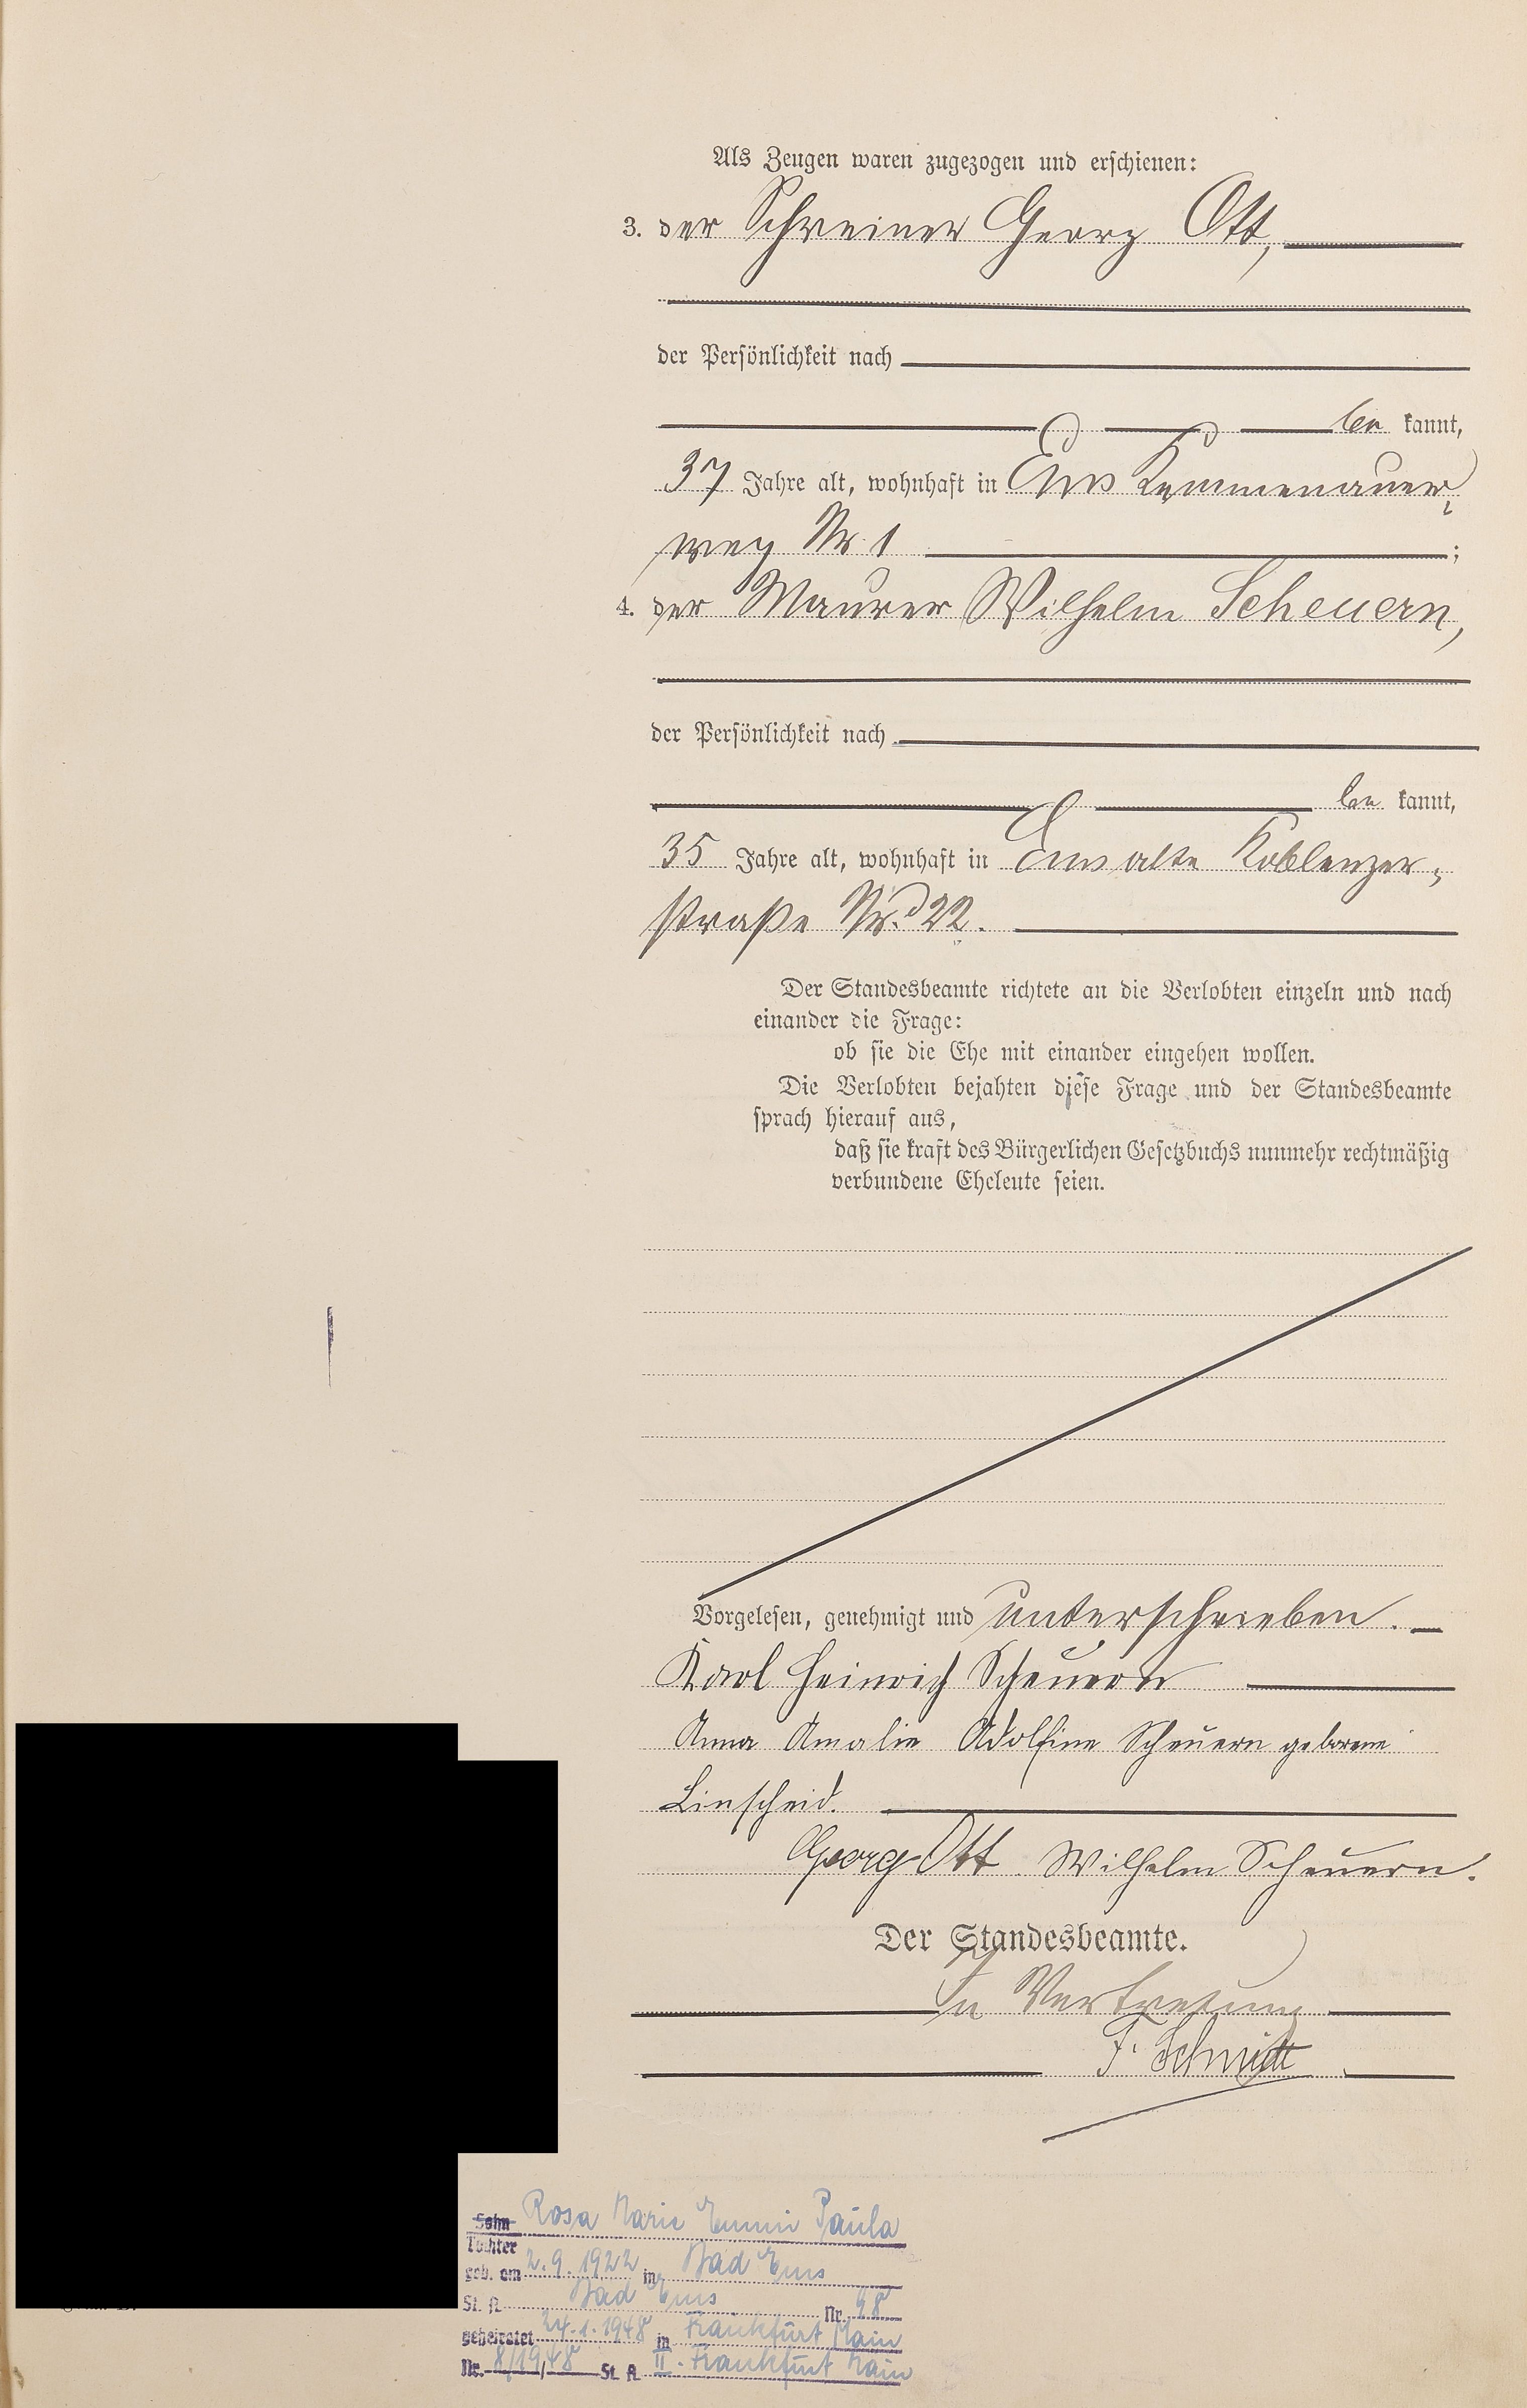 Als Zeugen waren zugezogen und erschienen:
3. der Schreiner Georg Ott,
der Persönlichkeit nach
be kannt,
37 Jahre alt, wohnhaft in Ems Kemmenauer-
weg Nr 1 ;
4. der Maurer Wilhelm Scheuern,
der Persönlichkeit nach
be kannt,
35 Jahre alt, wohnhaft in Ems alte Koblenzer-
straße Nr. 22.
Der Standesbeamte richtete an die Verlobten einzeln und nach
einander die Frage:
ob sie die Ehe mit einander eingehen wollen.
Die Verlobten bejahten diese Frage und der Standesbeamte
sprach hierauf aus,
daß sie kraft des Bürgerlichen Gesetzbuchs nunmehr rechtmäßig
verbundene Eheleute seien.
Vorgelesen, genehmigt und unterschrieben.
Karl Heinrich Scheuern
Anna Amalie Adolfine Scheuern geborene
Linscheid.
Georg Ott Wilhelm Scheuern.
Der Standesbeamte.
In Vertretung
F. Schmidt
Sohn Rosa Marie Emmi Paula
Tochter
geb. am 2.9.1922 in Bad Ems
St. A. Bad Ems Nr. 98
geheiratet 24.1.1948 in Frankfurt Main
Nr. 8/1948 St. A. II. Frankfurt Main